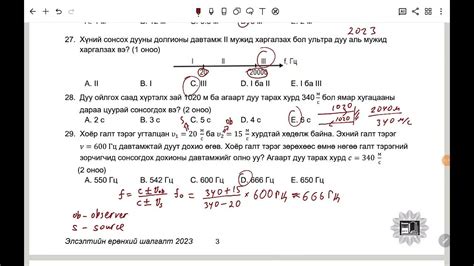 2023
27. Хүний сонсох дууны долгионы давтамж II мужид харгалзах бол ультра дуу аль мужид
харгалзах вэ? (1 оноо)
I II III f, Гц
20 20000
A. II B. I C. III D. I ба II E. I ба III
28. Дуу ойлгох саад хүртэлх зай 1020 м ба агаарт дуу тарах хурд 340 м/с бол ямар хугацааны
дараа цуурай сонсогдох вэ? (2 оноо)
C. 5 с D. 4 с E. 6 с
1020
1020
2040м
340 м/с
29. Хоёр галт тэрэг угталцан υ₁ = 20 м/с ба υ₂ = 15 м/с хурдтай хөдөлж байна. Эхний галт тэрэг
ν = 600 Гц давтамжтай дуут дохио өгөв. Хоёр галт тэрэг зөрөхөөс өмнө нөгөө галт тэрэгний
зорчигчид сонсогдох дохионы давтамжийг олно уу? Агаарт дуу тарах хурд c = 340 м/с
(2 оноо)
A. 550 Гц B. 542 Гц C. 600 Гц D. 666 Гц E. 650 Гц
f = (c ± υob)/(c ± υs) f₀ = (340+15)/(340-20) × 600Гц ≈ 666Гц
ob - observer
s - source
Элсэлтийн ерөнхий шалгалт 2023 3